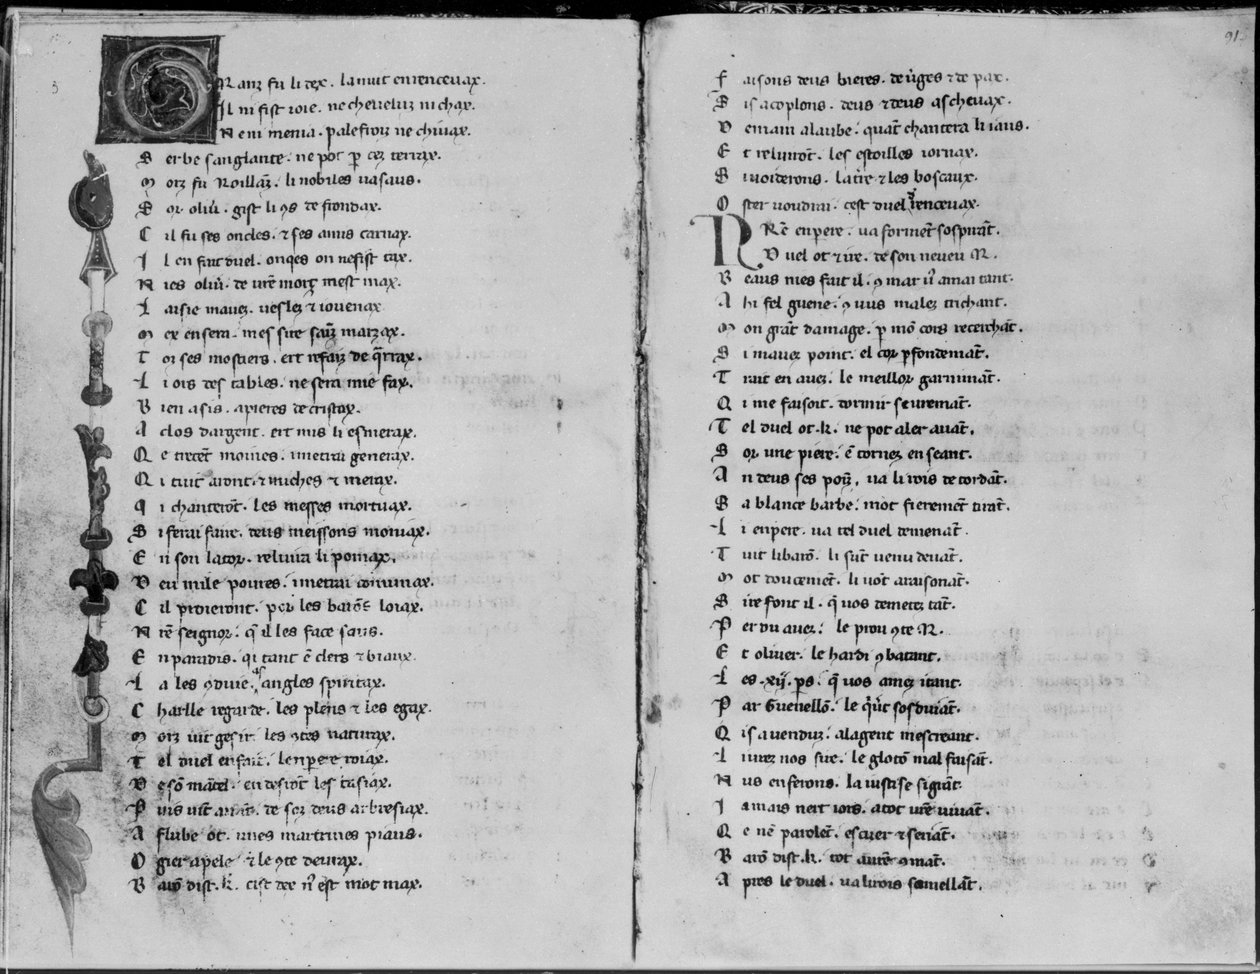 GRanz fu li dex. la nuit en rencevax.
Il ni fist ioie. ne cheveluz ni chax.
Ne ni menia. palefroiz ne chivax.
Berbe sanglante. ne pot p cez terrax.
Morz fu Rollāz. li nobiles vasaus.
Sor oliū. gist li 9s de frondax.
Cil fu ses oncles. ⁊ ses amis carnax.
Il en fait duel. onqes on nefist tax.
Nies oliū. de vr̄e morz mest max.
Laisie mavez. veslez ⁊ iovenax
Mex en sera. mes sire saīz marzax.
Toz ses mostiers. ert refaiz de q̄rrax.
Li ois des tables. ne sera mie fax.
Bien asis. apieres de cristax.
A clos dargent. ert mis li esmerax.
Qe trecēt moines. imetrai generax.
Qi tuit aront. ⁊ miches ⁊ merax.
Qi chanterōt. les messes mortuax.
Si ferai faire. deus meissons moniax.
En son lator. reluira li pomax.
Deu mile poures. imetrai comunax.
Cil proieront. por les barōs loiax.
Nr̄e seignor. q̄ il les face saus.
En paradis. qi tant ē clers ⁊ biaux.
La les 9duie. angles spiritax.
Charlle regarde. les pleins ⁊ les egax.
Morz uit gesir. les 9tes naturax.
Tel duel en fait. lenperere roiax.
De sō mātel. en desrōt les tasiax.
Puis uīt arriēs. desoz deus arbresiax.
Aflube ot. unes martrines piaus.
Ogier apele ⁊ le 9te deurax.
Barō dist .k. cist dex n̄ est mot max.
91
Faisons deus bieres. de v̄ges ⁊ de pax.
Sis acoplons. deus ⁊ deus as chevax.
Demain alaube. quāt chantera li iaus.
Et reluirōt. les estoilles iornax.
Si uoiderons. lat̄re ⁊ les boscaux.
Oster voudrai. cest duel d rencevax.
RRē enpere. va formēt sospirāt.
Duel ot ⁊ ire. de son neveu R.
Beaus nies fait il. 9 mar v̄ amai tant.
Ahi fel guene. 9 vus malez trichant.
Mon grāt damage. p mō cors recerchāt.
Si mavez point. el cor pfondemāt.
Trait en avez. le meillor garnimāt.
Qi me faisoit. dormir seuremāt.
Tel duel ot .k. ne pot aler avāt.
Sor une piere. ē tornez en seant.
An deus ses poīz. va li rois detordāt.
Sa blance barbe. mōt fieremēt tirāt.
Li enpere. va tel duel demenāt.
Tuit li barō. li sūt venu devāt.
Mot doucemēt. li vōt araisonāt.
Sire font il. q̄ vos demetez tāt.
Perdu avez. le prou 9te R.
Et oliver. le hardi 9batant.
Les .xij. ps. q̄ vos amez itant.
Par Guenellō. le q̄vt sosduiāt.
Qis a venduz. alagent mescreant.
Livrez nos sire. le glotō mal faisāt.
Nus en ferons. la iustise si grāt.
Iamais nert iors. a tot vr̄e vivāt.
Qe nē parolēt. escuer ⁊ seriāt.
Barō dist .k. tot aurez 9māt.
Apres le duel. va li rois somellāt.